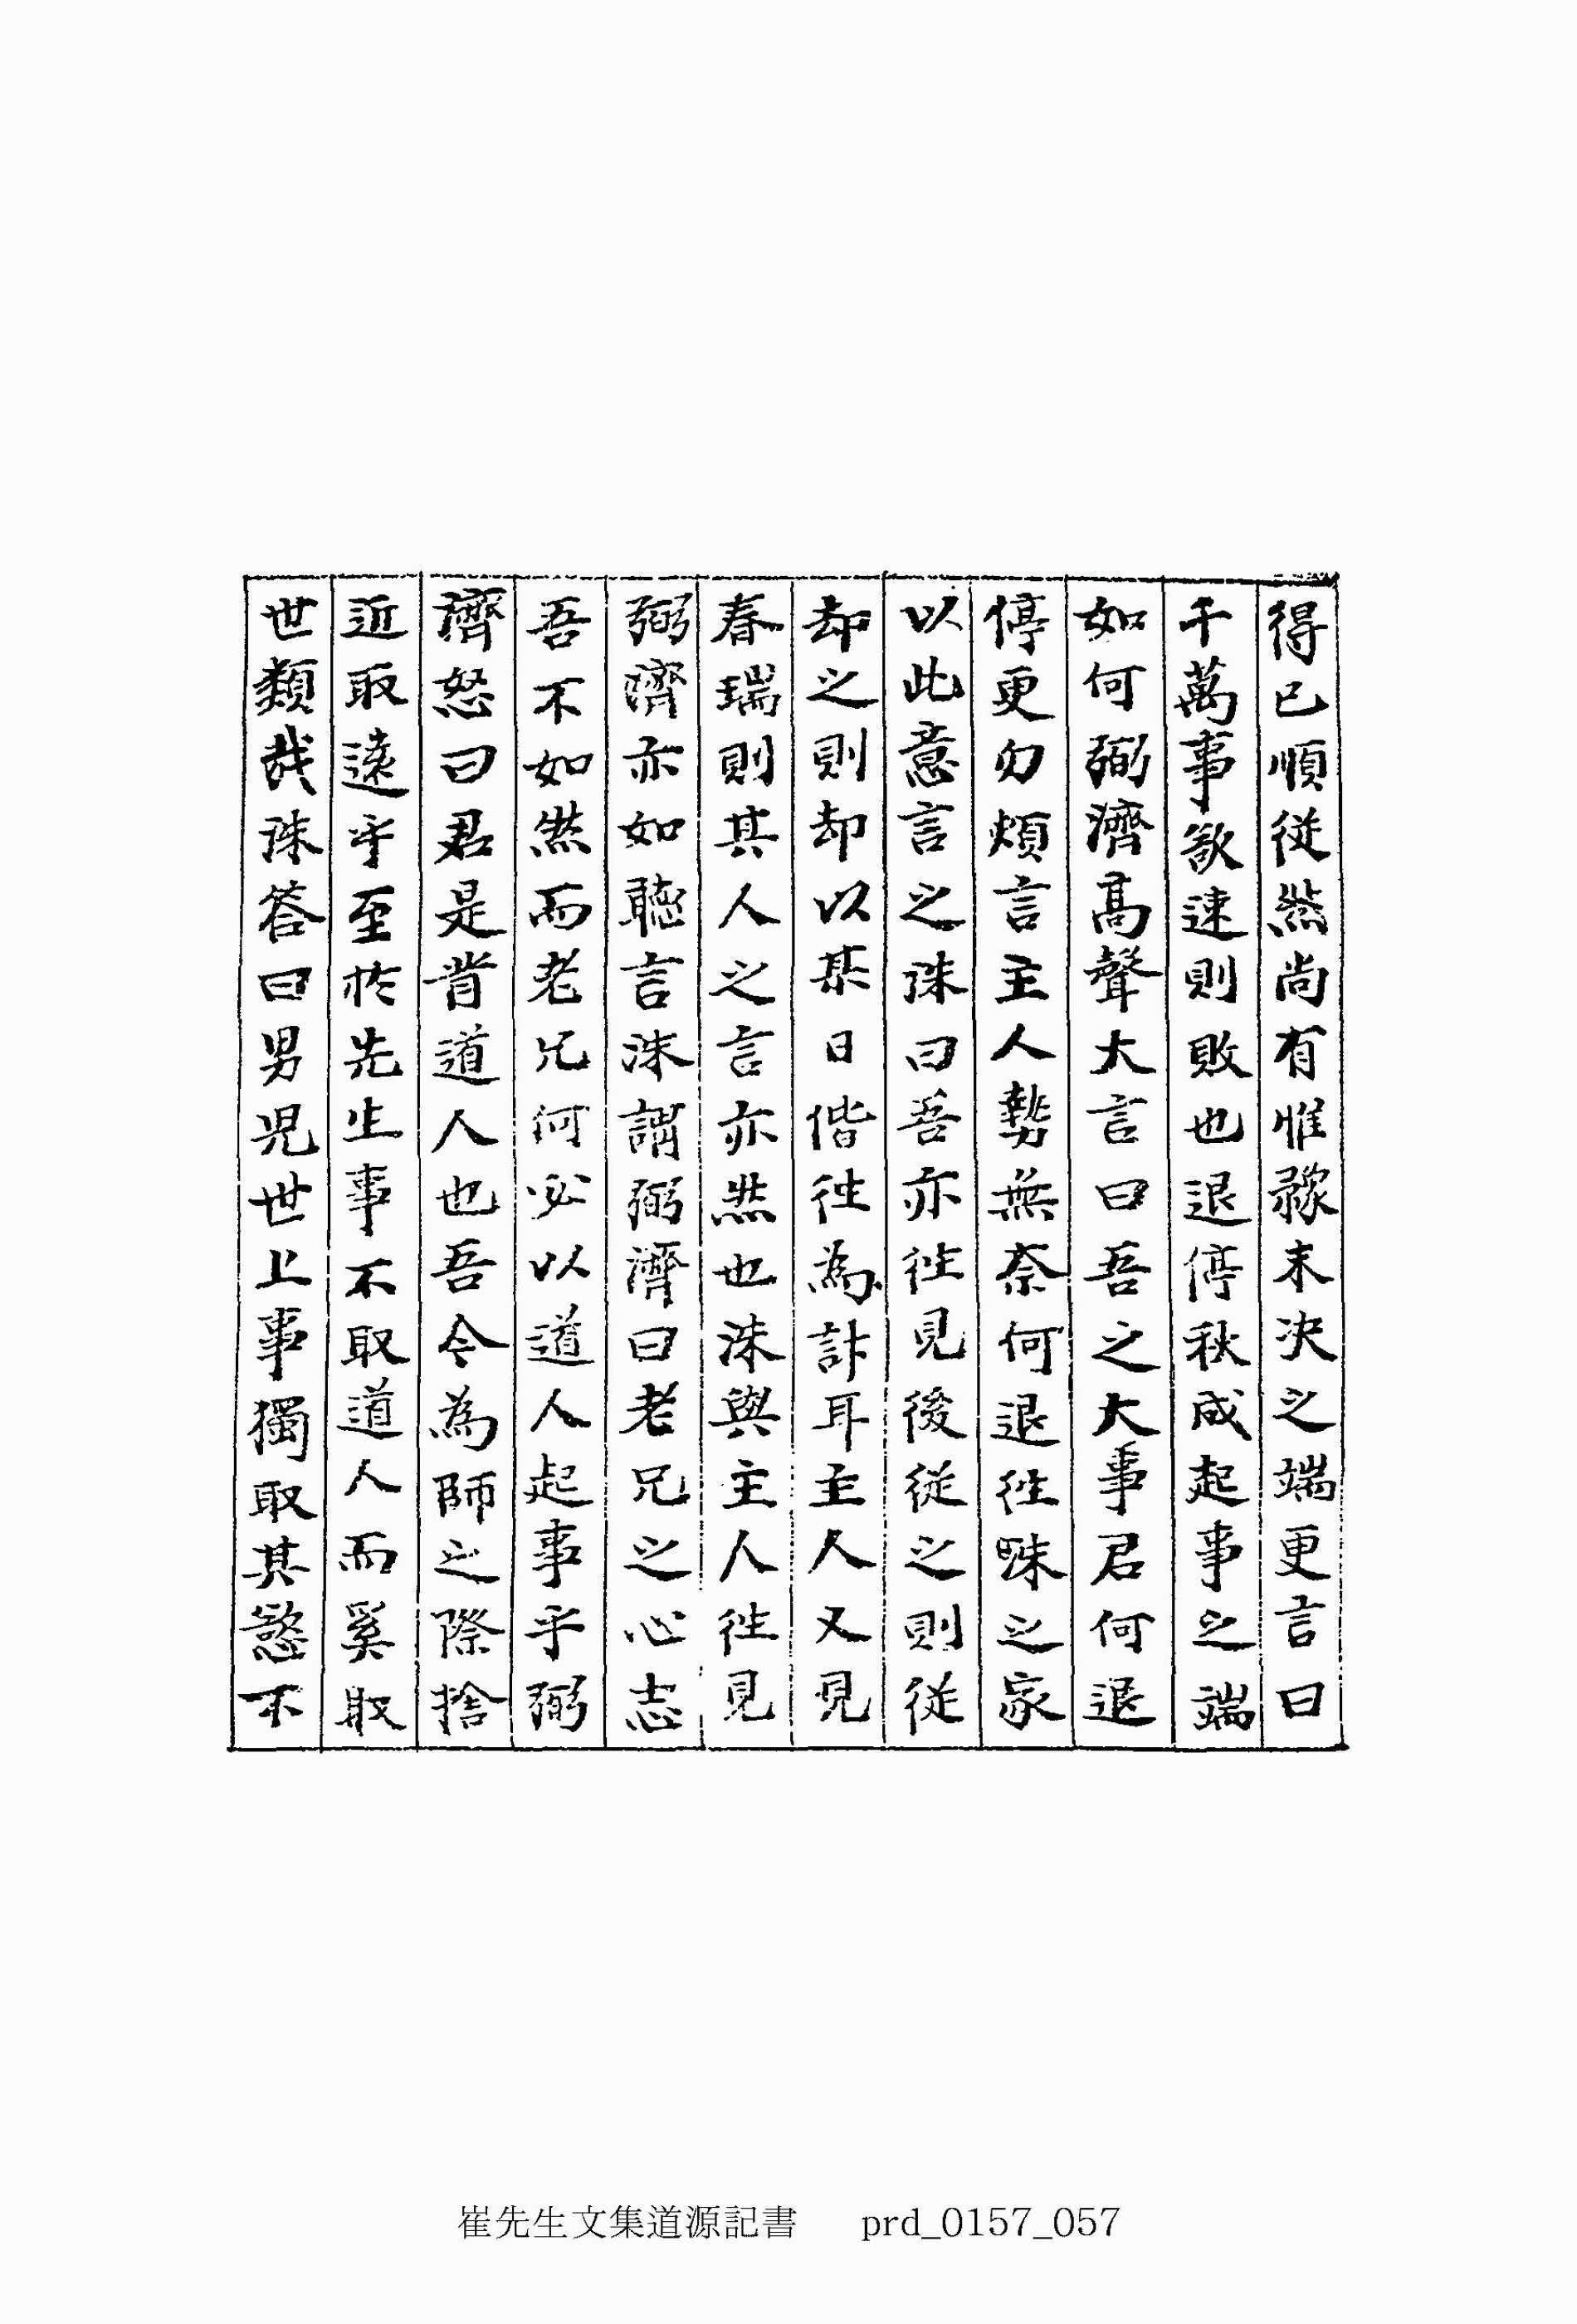 得已順從然尚有惟豫未决之端更言曰
千萬事欲速則敗也退停秋成起事之端
如何弼濟高聲大言曰吾之大事君何退
停更勿煩言主人勢無奈何退往昧之家
以此意言之洙曰吾亦往見後從之則從
却之則却以某日偕往為計耳主人又見
春瑞則其人之言亦然也洙與主人往見
弼濟亦如聽言洙謂弼濟曰老兄之心志
吾不如然而老兄何必以道人起事乎弼
濟怒曰君是背道人也吾今為師之際捨
近取遠乎至於先生事不取道人而奚取
世類哉洙答曰男児世上事獨取其慾不
崔先生文集道源記書 prd_0157_057